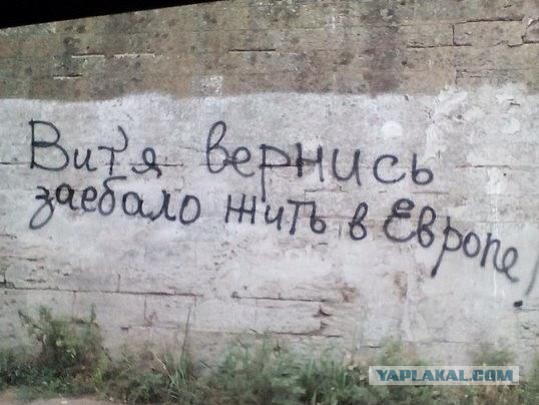 Вит'я вернись
заебало жить в Европе!
YAPLAKAL.COM